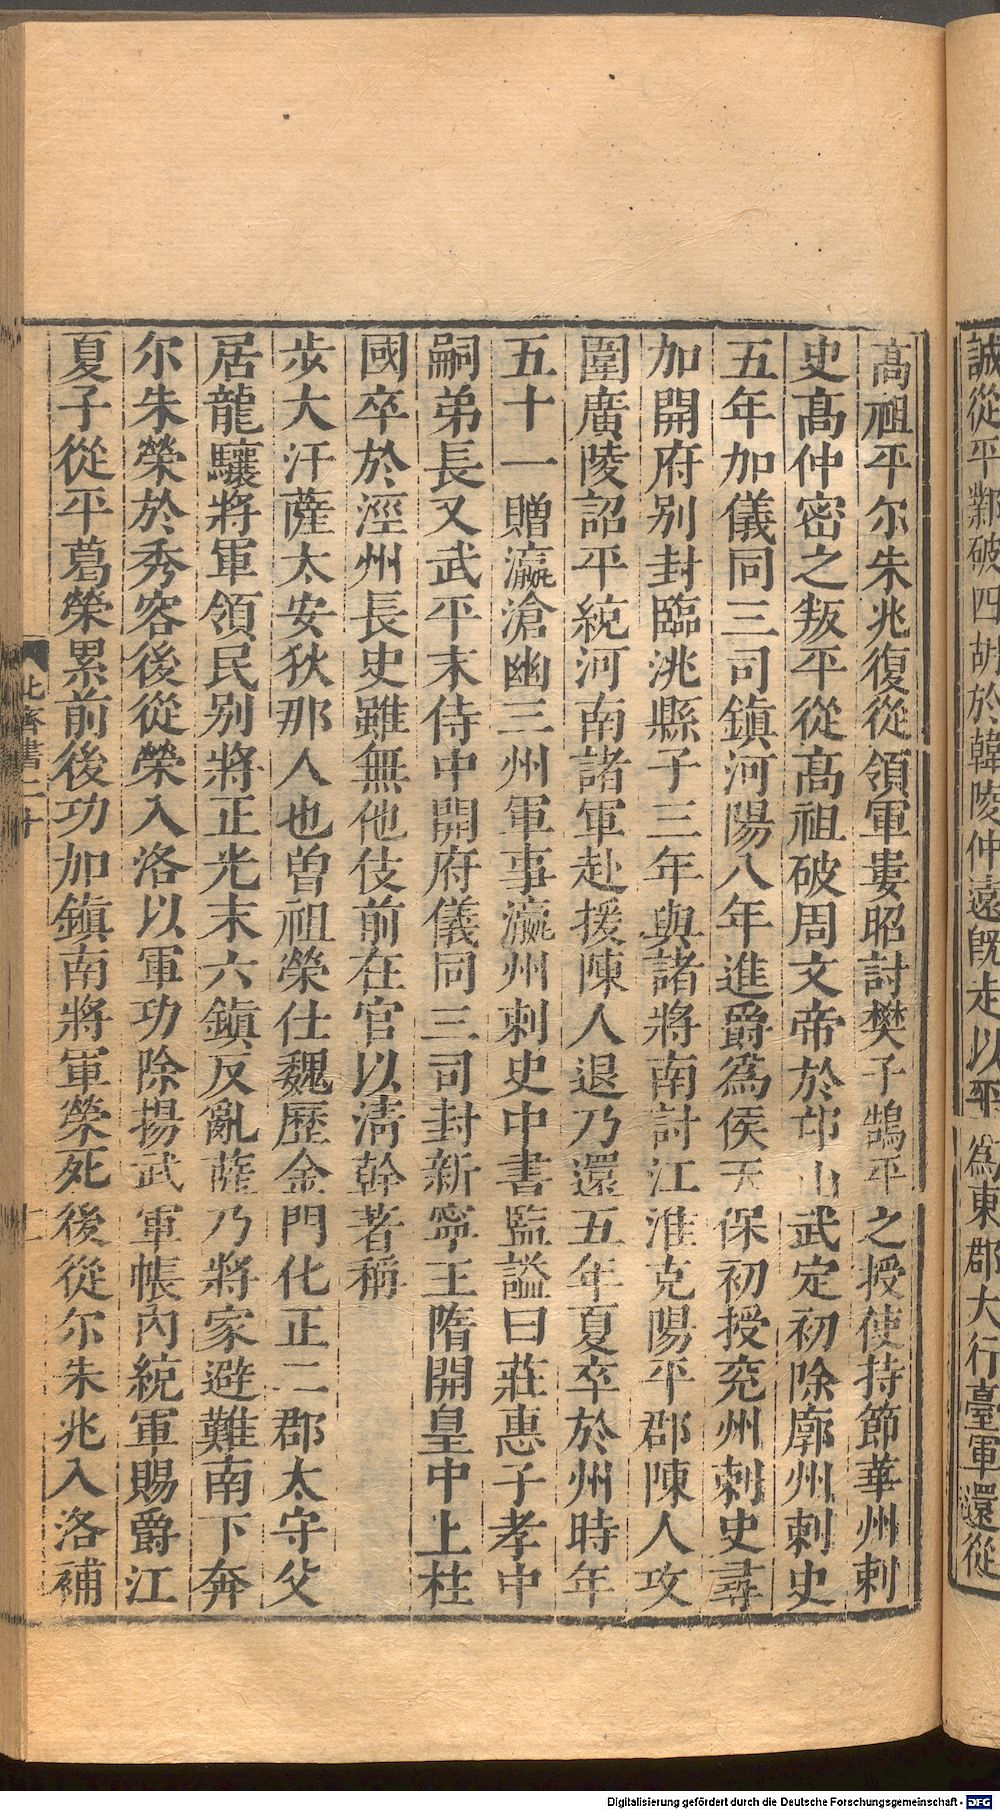 誠從平鄴破四胡於韓陵仲遠既走以平爲東郡大行臺軍還從
高祖平尔朱兆復從領軍婁昭討樊子鵠平之授使持節華州刺
史高仲密之叛平從高祖破周文帝於邙山武定初除廓州刺史
五年加儀同三司鎮河陽八年進爵爲侯天保初授兖州刺史尋
加開府别封臨洮縣子三年與諸將南討江淮克陽平郡陳人攻
圍廣陵詔平統河南諸軍赴援陳人退乃還五年夏卒於州時年
五十一贈瀛滄幽三州軍事瀛州刺史中書監謚曰莊惠子孝中
嗣弟長又武平末侍中開府儀同三司封新寧王隋開皇中上柱
國卒於涇州長史雖無他伎前在官以清幹著稱
步大汗薩太安狄那人也曾祖榮仕魏歷金門化正二郡太守父
居龍驤將軍領民别將正光末六鎮反亂薩乃將家避難南下奔
尔朱榮於秀容後從榮入洛以軍功除揚武軍帳內統軍賜爵江
夏子從平葛榮累前後功加鎮南將軍榮死後從尔朱兆入洛補
北齊書二十
二
Digitalisierung gefördert durch die Deutsche Forschungsgemeinschaft - DFG